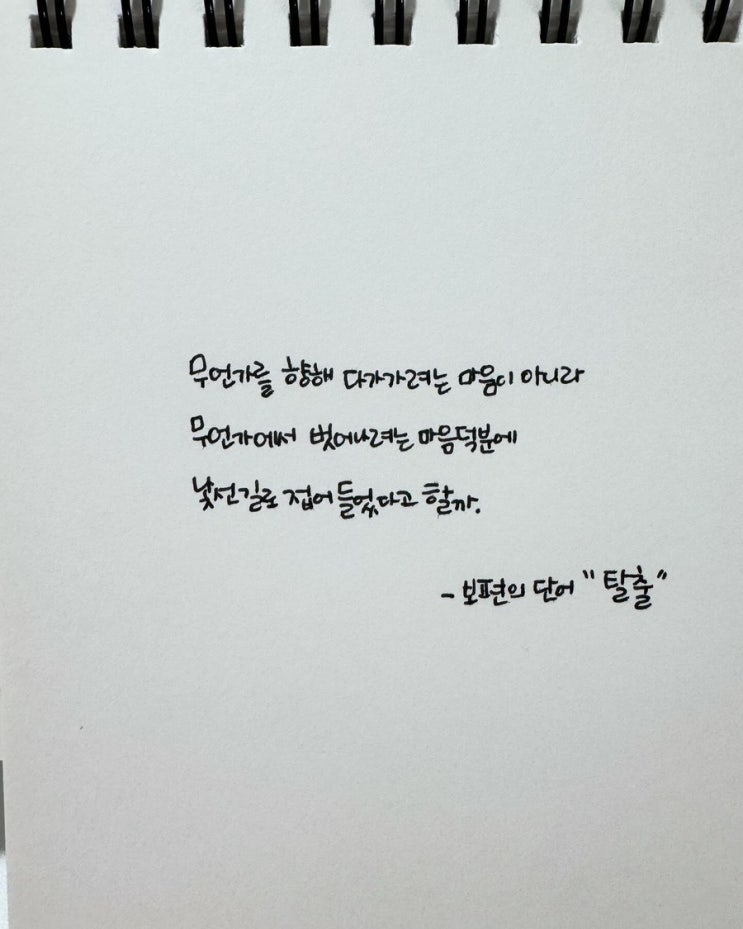 무언가를 향해 다가가려는 마음이 아니라
무언가에서 벗어나려는 마음덕분에
낯선길로 접어들었다고 할까.
- 보편의 단어 "탈출"